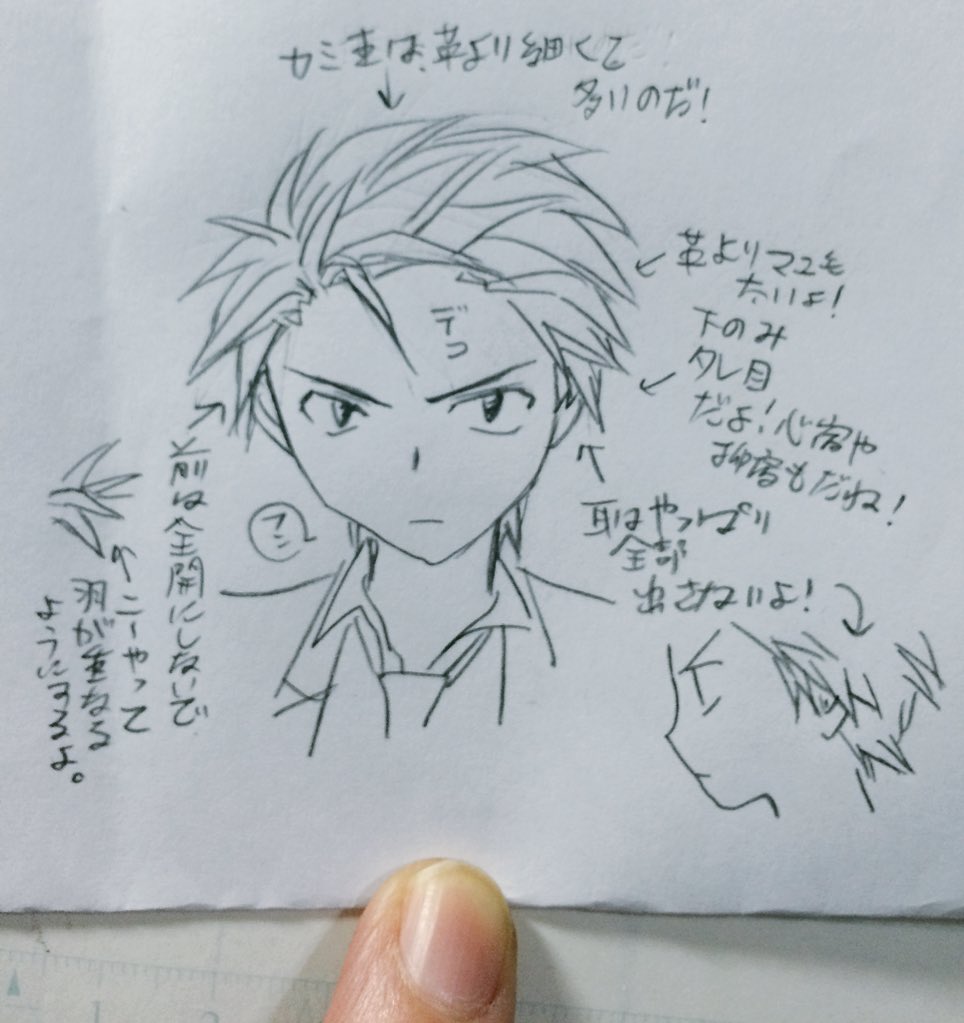 カミ圭は、革より細くて
多いのだ!
革よりマユも
太いよ!
下のみ
タレ目
だよ!心宿や
柳宿もだね!
デコ
耳はやっぱり
全部
出さないよ!
前は全開にしないで
こーやって
羽が重なる
ようにするよ。